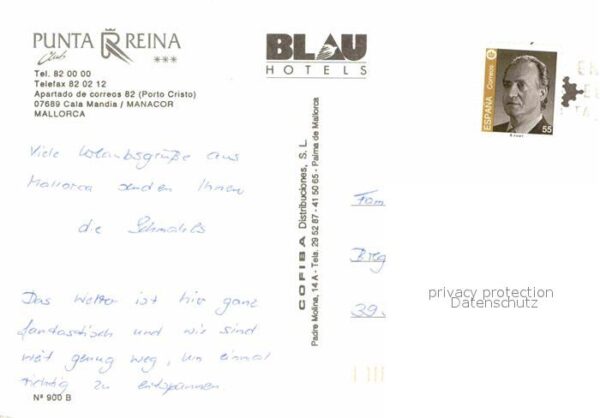 PUNTA REINA
Club ***
Tel. 82 00 00
Telefax 82 02 12
Apartado de correos 82 (Porto Cristo)
07689 Cala Mandia / MANACOR
MALLORCA
BLAU
HOTELS
ESPAÑA Correos
55
Viele Urlaubsgrüße aus
Mallorca senden Ihnen
die Schmahls
Das Wetter ist hier ganz
fantastisch und wir sind
weit genug weg, um einmal
richtig zu entspannen.
Nº 900 B
COFIBA Distribuciones, S. L.
Padre Molina, 14 A - Tels. 29 52 87 - 41 50 65 - Palma de Mallorca
Fam
39.
privacy protection
Datenschutz